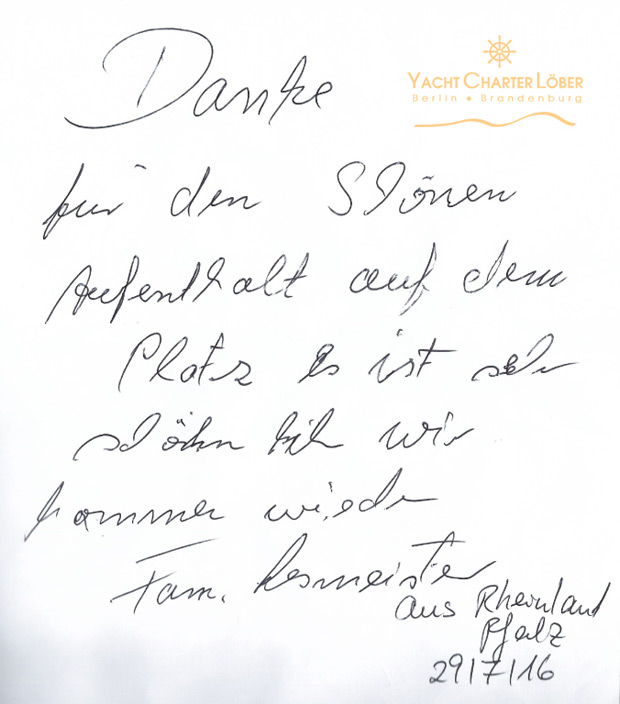 YACHT CHARTER LÖBER
Berlin • Brandenburg
Danke
für den Slönen
Aufenthalt auf dem
Platz Es ist sehr
slöhn wir
kommen wieder
Fam.
aus Rheinland
Pfalz
29/7/16